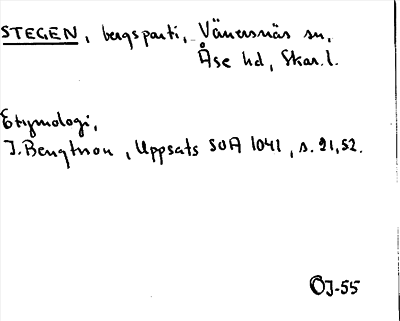 STEGEN, bergsparti, Vänersnäs sn,
Åse hd, Skar. l.
Etymologi,
J. Bengtsson, Uppsats SOA 1041, s. 21, 52.
ÖJ-55